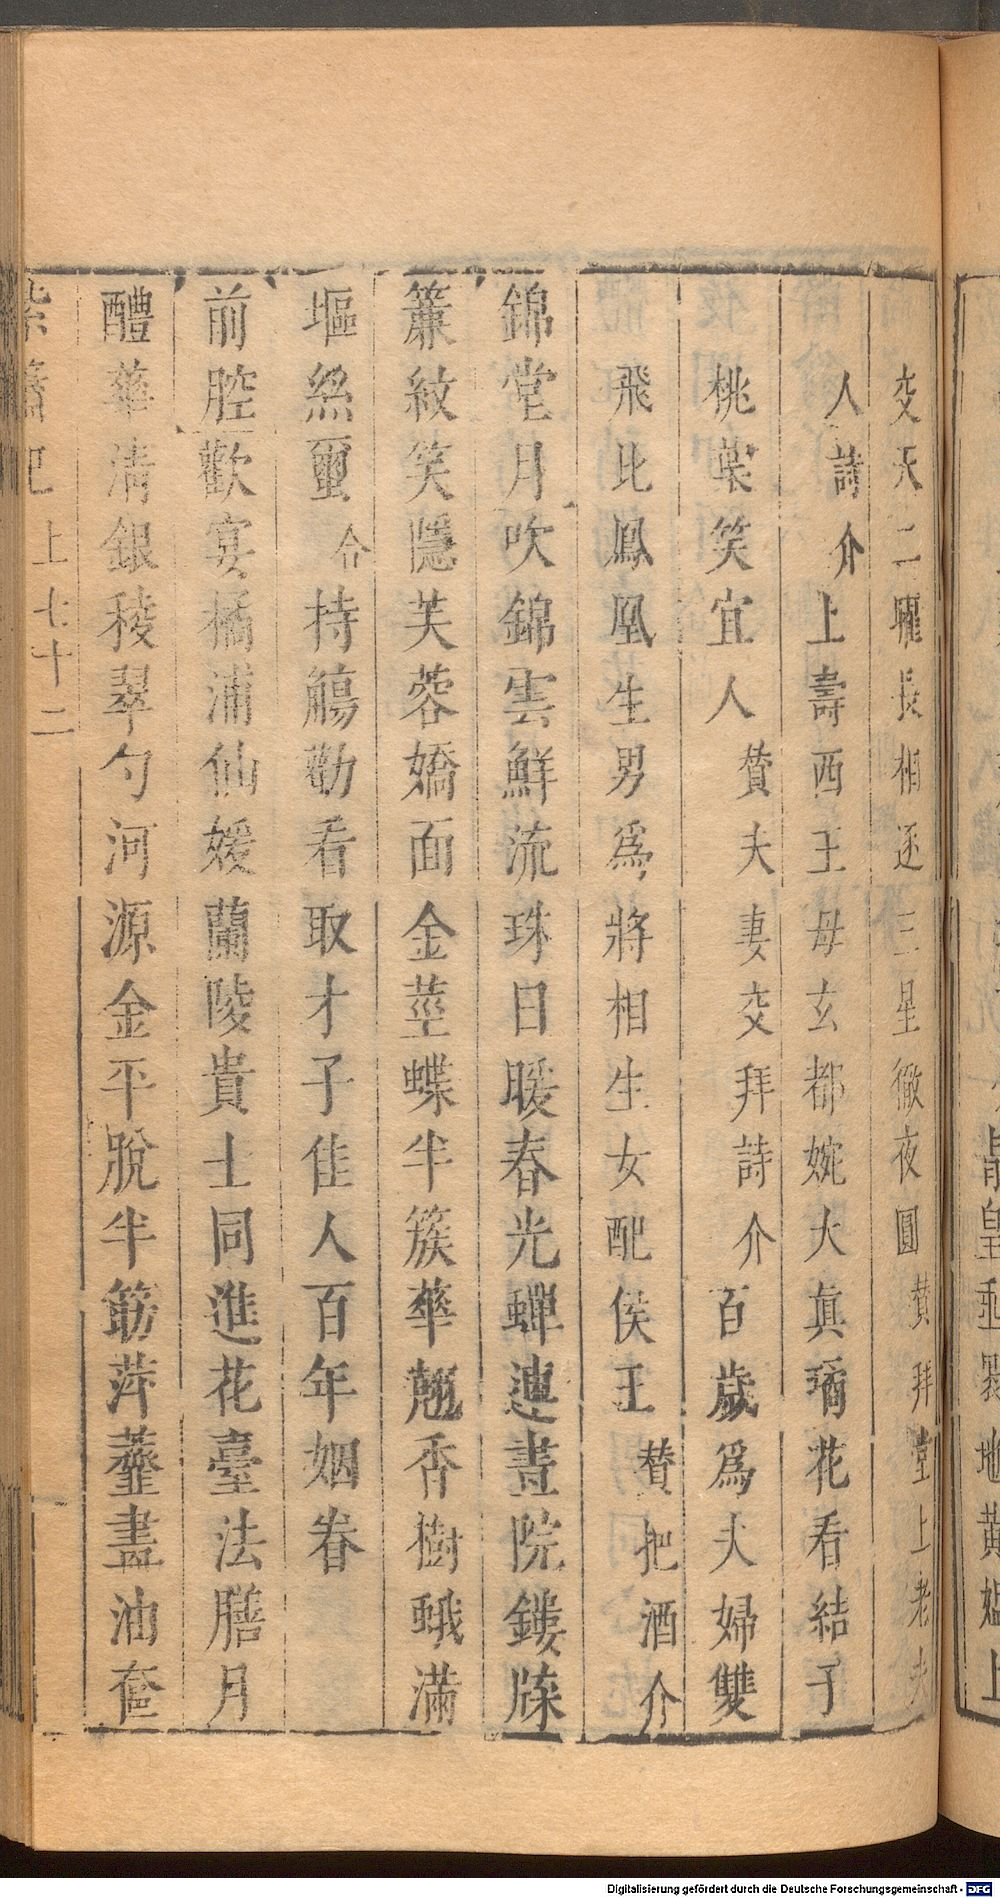 交天二曜長相逐三星徹夜圓贊拜堂上老夫
人詩介上壽西王母玄都婉大眞璚花看結子
桃葉笑宜人贊夫妻交拜詩介百歲爲夫婦雙
飛比鳳凰生男爲將相生女配侯王贊把酒介
錦堂月吹錦雲鮮流珠日暖春光蟬連書院鏤牀
簾紋笑隱芙蓉嬌面金莖蝶半簇華翹香樹蛾滿
堀絲璽合持觴勸看取才子佳人百年姻眷
前腔歡宴橘浦仙媛蘭陵貴士同進花臺法膳月
醴華淸銀稜翠勺河源金平脫半筯萍虀盡油奩
紫簫記
上七十二
皇
地黃媼上
Digitalisierung gefördert durch die Deutsche Forschungsgemeinschaft - DFG